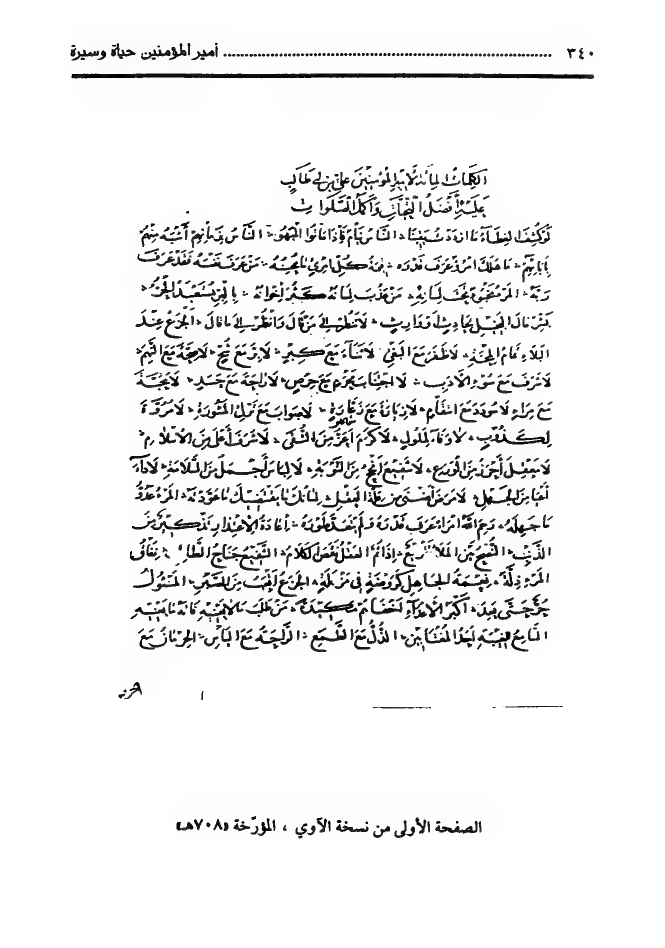 ٣٤٠ ........ أمير المؤمنين حياة وسيرة
الكلمات المائة لأمير المؤمنين علي بن أبي طالب
عليه أفضل التحيات وأكمل الصلوات
لو كشف الغطاء ما ازددت يقينا الناس نيام فإذا ماتوا انتبهوا الناس بزمانهم أشبه منهم
بآبائهم ما هلك امرؤ عرف قدره قيمة كل امرئ ما يحسنه من عرف نفسه فقد عرف
ربه المرء مخبو تحت لسانه من عذب لسانه كثر إخوانه بالبر يستعبد الحر
بشر مال البخيل بحادث أو وارث لا تنظر إلى من قال وانظر إلى ما قال الجزع عند
البلاء تمام المحنة لا ظفر مع البغي لا ثناء مع كبر لا بر مع شح لا صحة مع النهم
لا شرف مع سوء الأدب لا اجتناب محرم مع حرص لا راحة مع حسد لا محبة
مع مراء لا سودد مع انتقام لا زيارة مع زعارة لا صواب مع ترك المشورة لا مروة
لكذوب لا وفاء لملول لا كرم أعز من التقى لا شرف أعلى من الإسلام
لا معقل أحرز من الورع لا شفيع أنجح من التوبة لا لباس أجمل من السلامة لا داء
أعيا من الجهل لا مرض أضنى من قلة العقل لسانك يقتضيك ما عودته المرء عدو
ما جهله رحم الله امرأ عرف قدره ولم يتعد طوره إعادة الاعتذار تذكير من
الذنب النصح بين الملأ تقريع إذا تم العقل نقص الكلام الشفيع جناح الطالب نفاق
المرء ذلة نعمة الجاهل كروضة في مزبلة الجزع أتعب من الصبر المسئول
حر حتى يعد أكبر الأعداء أخفاهم مكيدة من طلب ما لا يعنيه فاته ما يعنيه
السامع للغيبة أحد المغتابين الذل مع الطمع الراحة مع اليأس الحرمان مع
الصفحة الأولى من نسخة الآوي ، المؤرّخة «٧٠٨هـ»